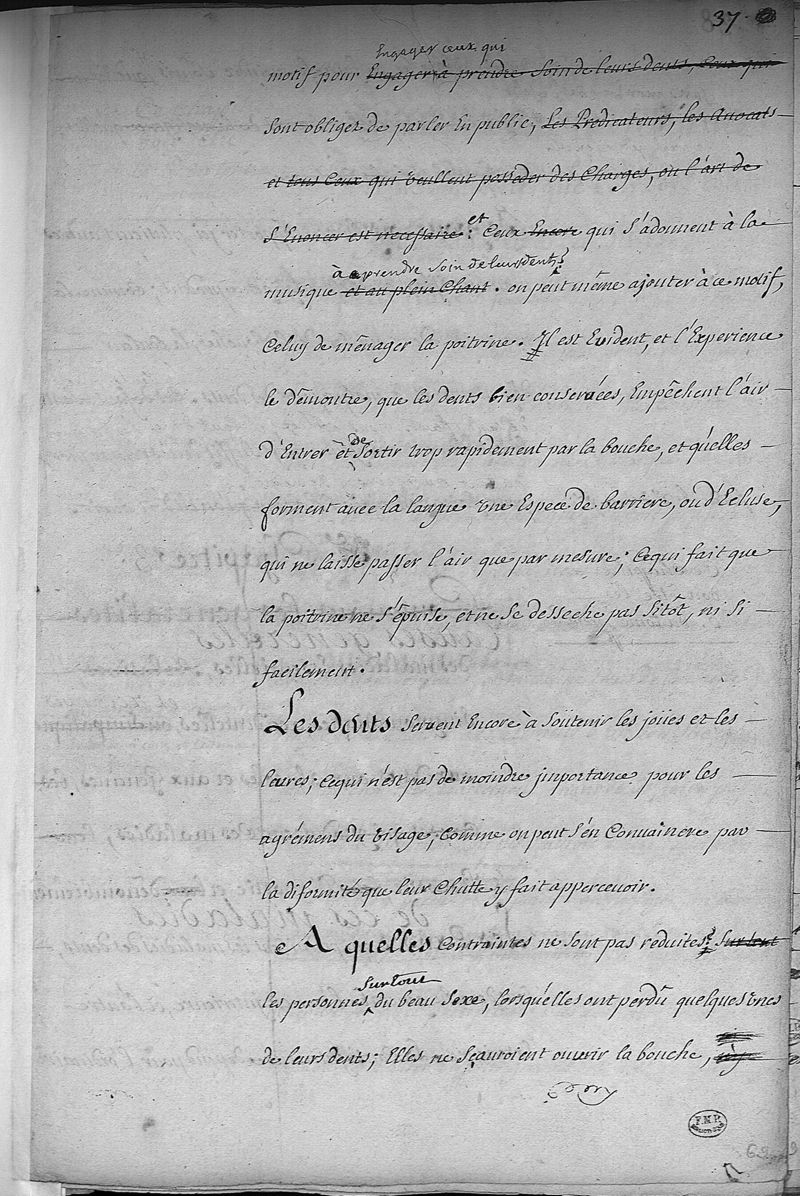 37
Engager ceux qui
motif pour Engager à prendre Soin de leurs dents, Ceux qui
Sont obligez de parler En public, Les Predicateurs, les Avocats
et tous Ceux qui veullent posseder des Charges, ou l'art de
S'Enoncer est necessaire : et Ceux Encore qui s'adonnent à la
à prendre Soin de leurs dents
musique et au plein Chant. on peut même ajouter à ce motif,
Celuy de ménager la poitrine. Il est Evident, et l'Experience
le démontre, que les dents bien conservées, Empêchent l'air
d'Entrer et de Sortir trop rapidement par la bouche, et qu'elles
forment avec la langue vne Espece de barriere, ou d'Ecluse,
qui ne laisse passer l'air que par mesure; Cequi fait que
la poitrine ne s'épuise, et ne se desseche pas Sitôt, ni si
facilement.
Les dents Servent Encore à Soûtenir les joües et les
levres; cequi n'est pas de moindre jmportance pour les
agrémens du visage, comme on peut S'en Convaincre par
la diformité que leur Chutte y fait appercevoir.
A quelles Contraintes ne Sont pas reduites Sur tout
les personnes Surtout du beau Sexe, lorsqu'elles ont perdû quelques vnes
de leurs dents; Elles ne Sçauroient ouvrir la bouche,